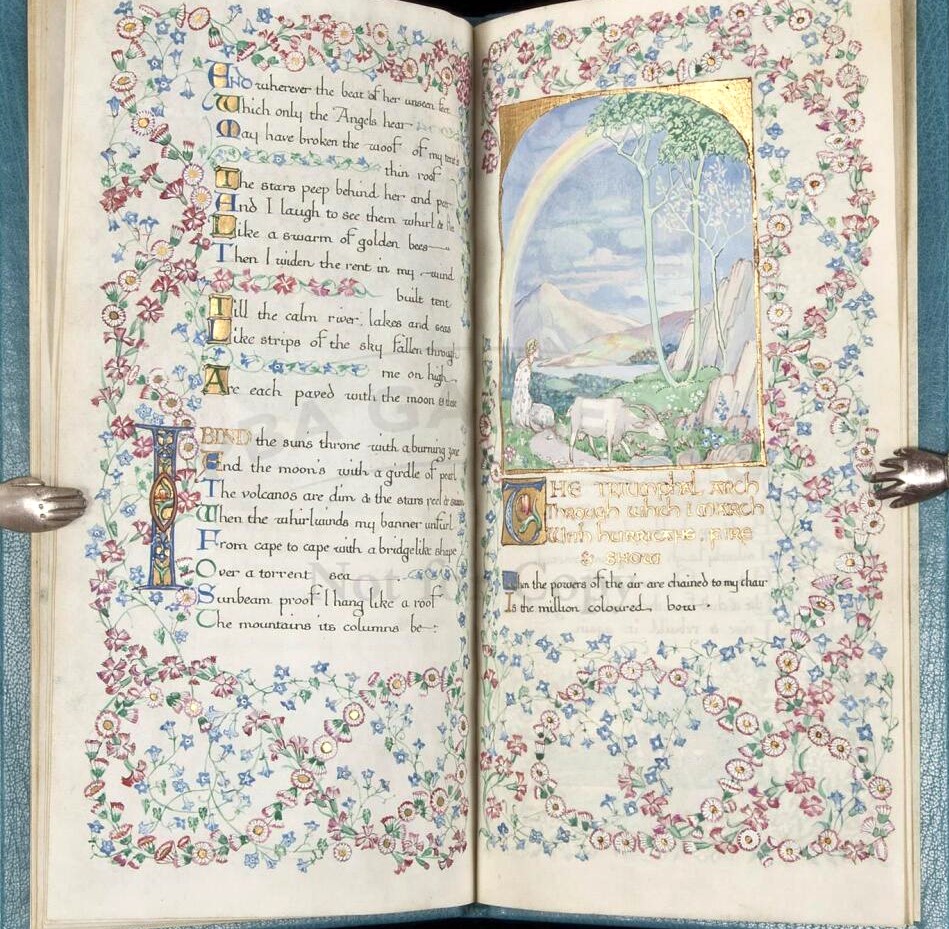 AND wherever the beat of her unseen feet
Which only the Angels hear
May have broken the woof of my tent's
thin roof
The stars peep behind her and peer
And I laugh to see them whirl & flee
Like a swarm of golden bees
Then I widen the rent in my wind
built tent
Till the calm river, lakes and seas
Like strips of the sky fallen through
me on high
Are each paved with the moon & these
I BIND the suns throne with a burning zone
And the moon's with a girdle of pearl
The volcanos are dim & the stars reel & swim
When the whirlwinds my banner unfurl
From cape to cape with a bridgelike shape
Over a torrent sea
Sunbeam proof I hang like a roof
The mountains its columns be
THE TRIUMPHAL ARCH
Through which I MARCH
With hurricane, fire
& snow
When the powers of the air are chained to my chair
Is the million coloured bow.